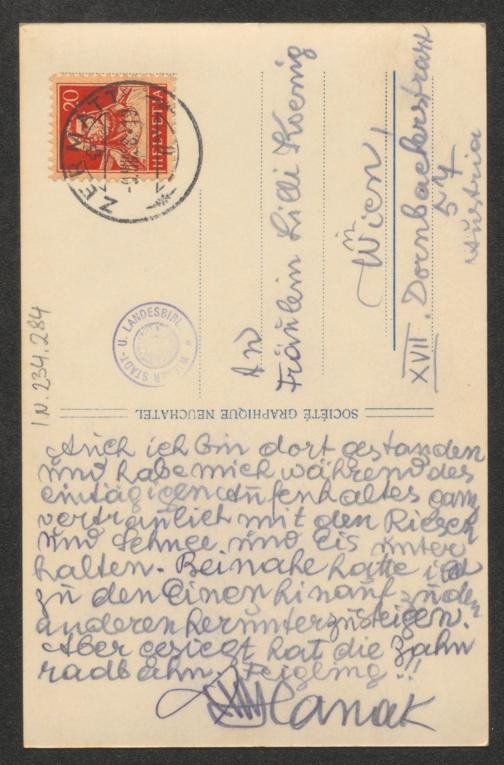 Auch ich bin dort gestanden
und habe mich während des
eintägigen Aufenhaltes ganz
vertraulich mit den Riesen
und Schnee und Eis unter
halten. Beinahe hätte ich
zu den Einen hinauf zu den
anderen herunterzusteigen.
Aber gesiegt hat die Zahn
radbahn. Feigling!!
Hanak
SOCIÉTÉ GRAPHIQUE NEUCHATEL
An
Fräulein Lilli Koenig
in
Wien!
XVII. Dornbacherstrasse
54
Austria
20
HELVETIA
ZERMATT
WIENER STADT- U. LANDESBIBL.
IN. 234.284